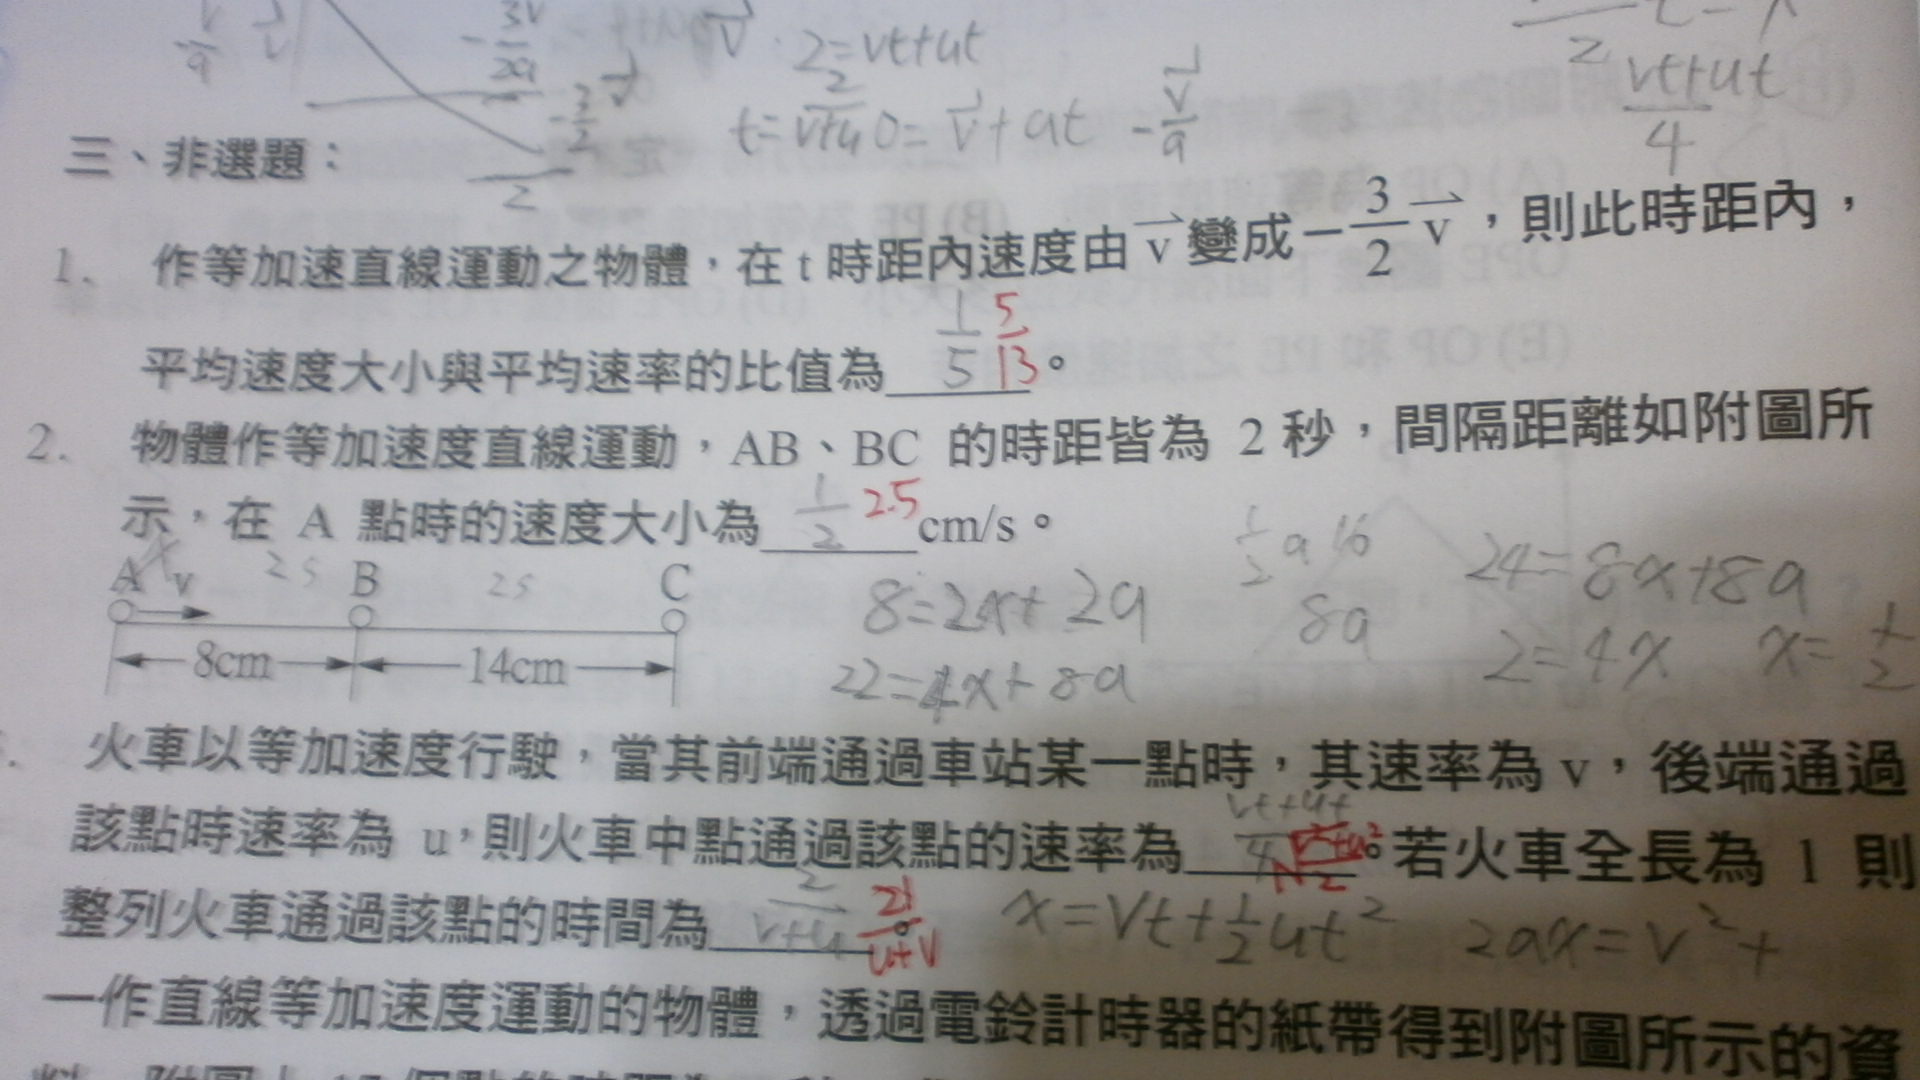 2=vt+ut
t=2/(v+u) 0=v+at -v/a
vt+ut/4
三、非選題：
1. 作等加速直線運動之物體，在 t 時距內速度由 v⃗ 變成 -3/2 v⃗，則此時距內，
平均速度大小與平均速率的比值為 1/5 5/13 。
2. 物體作等加速度直線運動，AB、BC 的時距皆為 2 秒，間隔距離如附圖所
示，在 A 點時的速度大小為 1/2 2.5 cm/s。
A v 2s B 2s C
8cm 14cm
8=2x+2a
22=4x+8a
1/2 a 16
8a
24=8x+8a
2=4x x=1/2
火車以等加速度行駛，當其前端通過車站某一點時，其速率為 v，後端通過
vt+ut
該點時速率為 u，則火車中點通過該點的速率為 。若火車全長為 l 則
整列火車通過該點的時間為 2/(v+u) 2l/(u+v) 。
x=Vt+1/2ut² 2ax=v²+
一作直線等加速度運動的物體，透過電鈴計時器的紙帶得到附圖所示的資